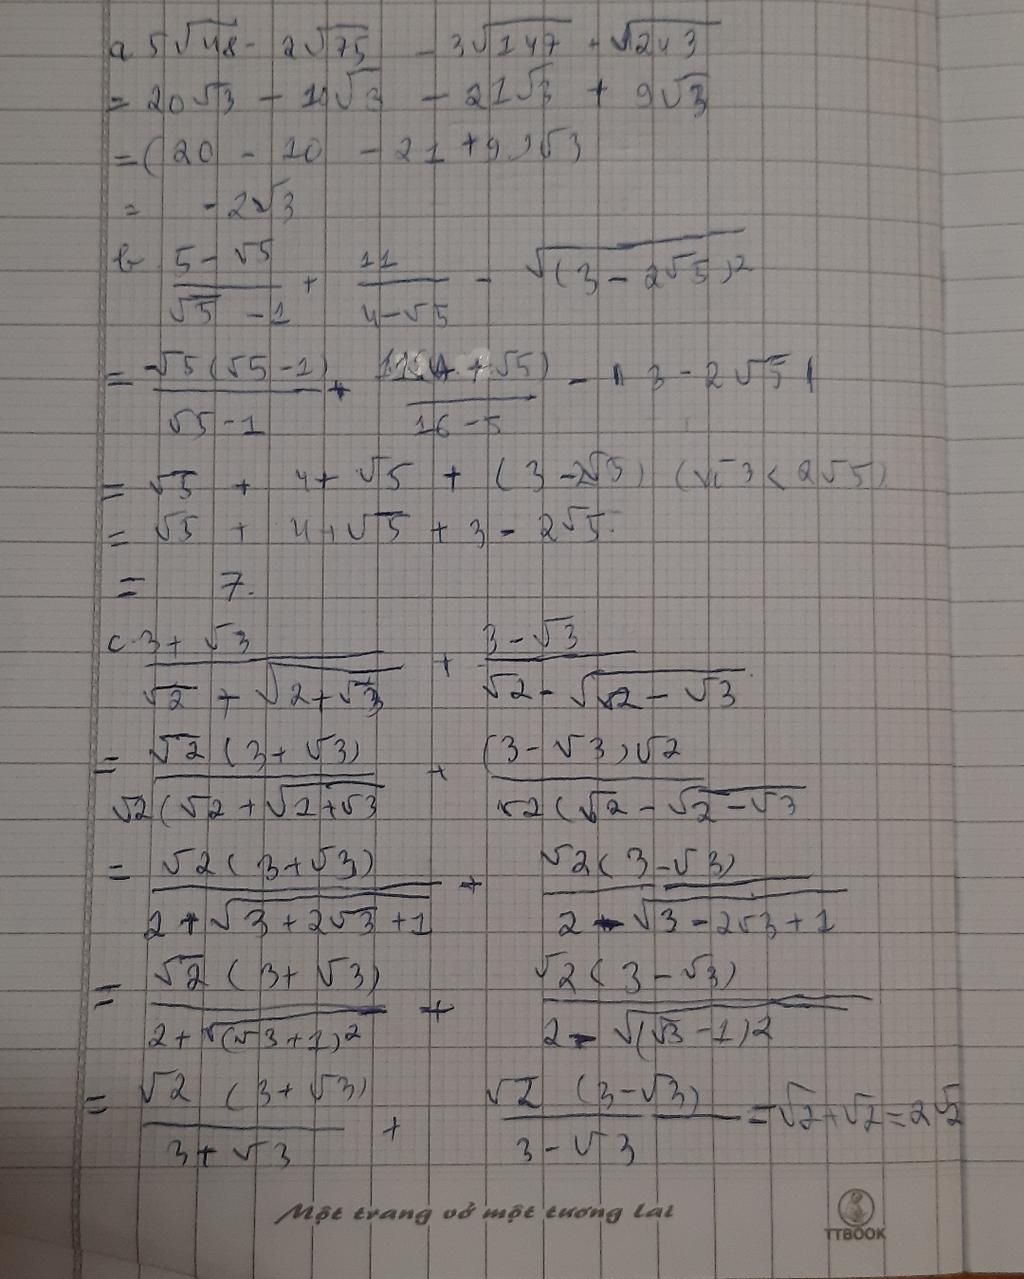 a 5√48 - 2√75 - 3√147 + √243
= 20√3 - 10√3 - 21√3 + 9√3
= (20 - 10 - 21 + 9)√3
= -2√3
b (5 - √5)/(√5 - 1) + 11/(4 - √5) - √((3 - 2√5)²)
= √5(√5 - 1)/(√5 - 1) + 11(4 + √5)/(16 - 5) - |3 - 2√5|
= √5 + 4 + √5 + (3 - 2√5) (vì 3 < 2√5)
= √5 + 4 + √5 + 3 - 2√5.
= 7.
c. (3 + √3)/(√2 + √(2 + √3)) + (3 - √3)/(√2 - √(2 - √3))
= √2(3 + √3)/(√2(√2 + √(2 + √3)) + (3 - √3)√2/(√2(√2 - √(2 - √3))
= √2(3 + √3)/(2 + √(3 + 2√3 + 1)) + √2(3 - √3)/(2 - √(3 - 2√3 + 1))
= √2(3 + √3)/(2 + √((√3 + 1)²)) + √2(3 - √3)/(2 - √((√3 - 1)2))
= √2(3 + √3)/(3 + √3) + √2(3 - √3)/(3 - √3) = √2 + √2 = 2√2
Một trang vở một tương lai
TTBOOK